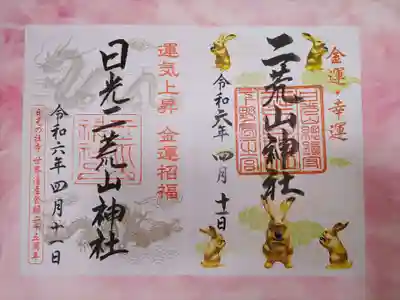 金運・幸運
二荒山神社
令和六年 四月十一日
運気上昇 金運招福
日光二荒山神社
令和六年 四月十一日
日光の社寺 世界遺産登録二十五周年